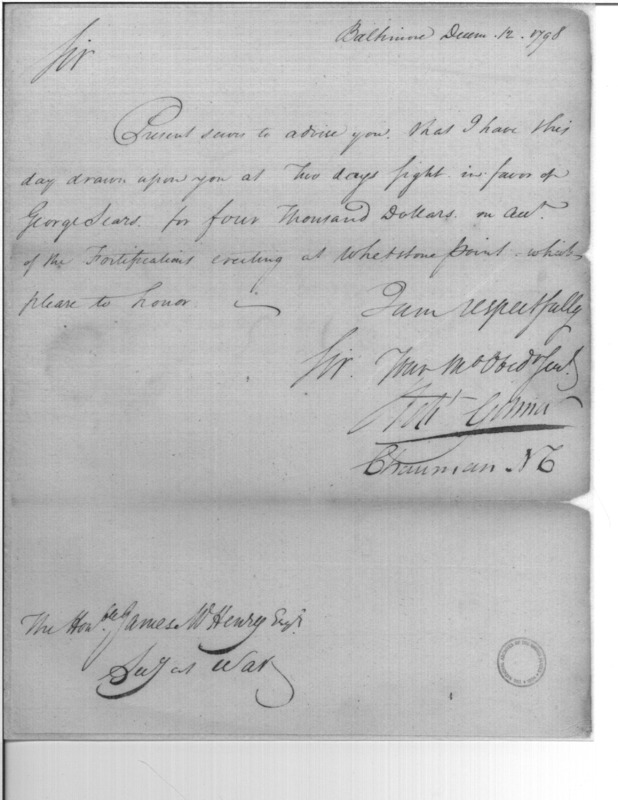 Baltimore Decem. 12. 1798
Sir
Present serves to advise you. that I have this
day drawn upon you at Two days sight. in favor of
George Sears. for four Thousand Dollars. on Acct.
of the Fortifications erecting at Whetstone Point. which
please to honor
I am respectfully
Sir. Your Mo Obedt Servt
Robt Gilmor
Chairman. N C
The Honble James McHenry Esqr.
Secy at War